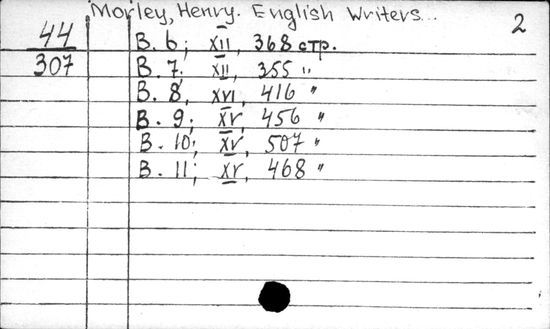 Morley, Henry. English Writers...
2
44
307
B. 6; XII, 368 стр.
B. 7. XII, 355 "
B. 8, XVI, 416 "
B. 9; XV, 456 "
B. 10; XV, 507 "
B. 11; XV, 468 "